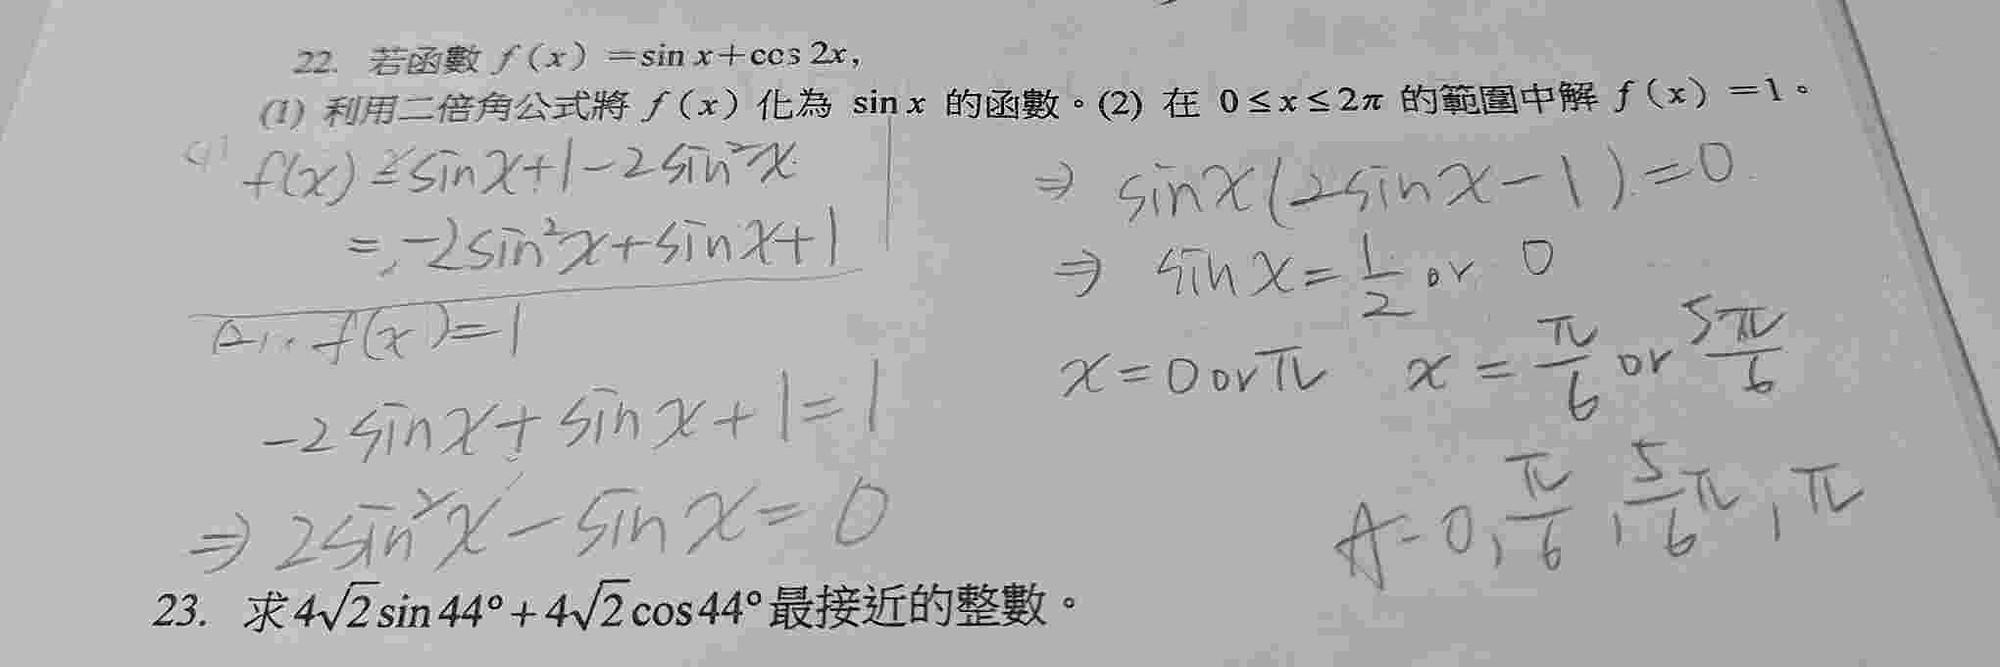 22. 若函數 f(x)=sin x+cos 2x,
(1) 利用二倍角公式將 f(x) 化為 sin x 的函數。(2) 在 0≤x≤2π 的範圍中解 f(x)=1。
(1) f(x)=sinx+1-2sin²x
=-2sin²x+sinx+1
f(x)=1
-2sinx+sinx+1=1
⇒2sin²x-sinx=0
⇒ sinx(2sinx-1)=0
⇒ sinx=1/2 or 0
x=0 or π x=π/6 or 5π/6
A=0, π/6, 5/6π, π
23. 求4√2sin44°+4√2cos44°最接近的整數。